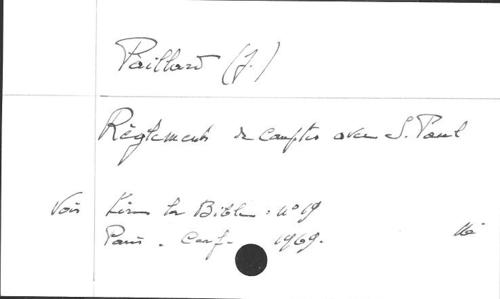 Paillard (J.)
Règlement de comptes avec S. Paul
Voir Lire la Bible : n° 19
Paris - Cerf - 1969.